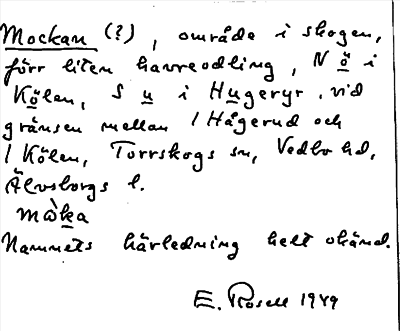 Mockan (?), område i skogen,
förr liten havreodling, N ö i
Kölen, S u i Hugeryr, vid
gränsen mellan 1 Hågerud och
1 Kölen, Torrskogs sn, Vedbo hd,
Älvsborgs l.
måka
Namnets härledning helt okänd.
E. Rosell 1949